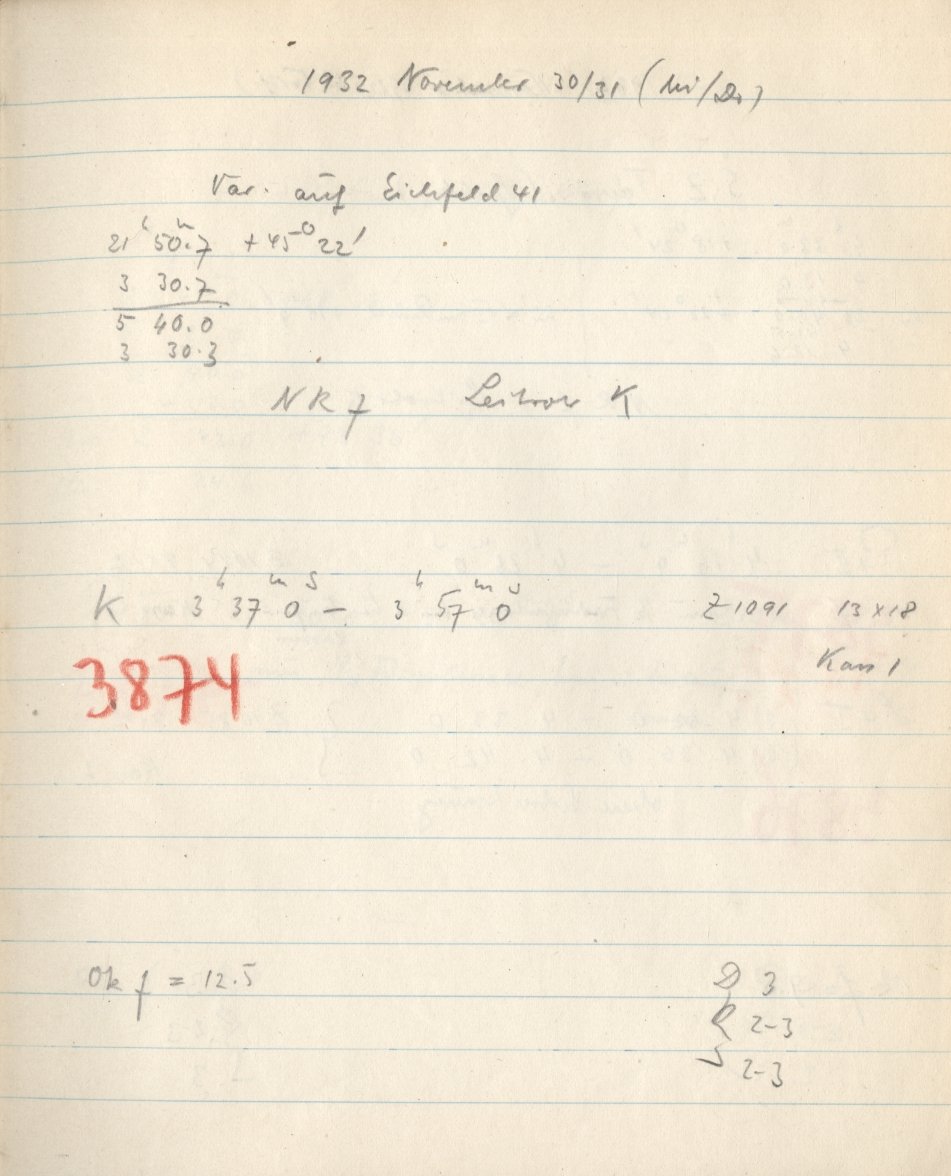 1932 November 30/31 (Mi/Do)
Var. auf Eichfeld 41
21ʰ 50.7ᵐ + 45° 22'
3 30.7
5 40.0
3 30.3
NR 7 Leitrohr K
K 3ʰ 37ᵐ 0ˢ — 3ʰ 57ᵐ 0ˢ Z 1091 13 x 18
Kass 1
3874
Ok f = 12.5
D 3
R 2-3
S 2-3